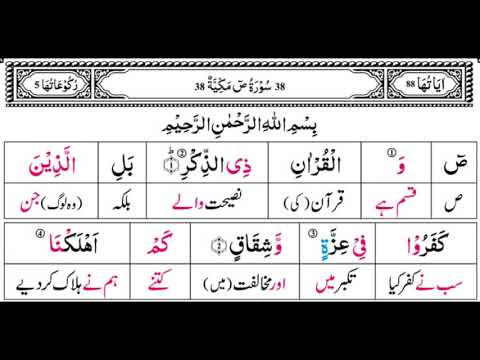 اٰیَاتُهَا 88 38 سُوْرَةُ صٓ مَكِّیَّةٌ 38 رُكُوْعَاتُهَا 5
بِسْمِ اللّٰهِ الرَّحْمٰنِ الرَّحِیْمِ
صٓ وَ ① الْقُرْاٰنِ ذِی الذِّكْرِ ② ؕ﴿۱﴾ بَلِ الَّذِیْنَ
ص قسم ہے قرآن (کی) نصیحت والے بلکہ (وہ لوگ) جن
كَفَرُوْا فِیْ عِزَّةٍ ③ وَّ شِقَاقٍ ﴿۲﴾ كَمْ اَهْلَكْنَا ④
سب نے کفر کیا تکبر میں اور مخالفت (میں) کتنے ہم نے ہلاک کر دیے